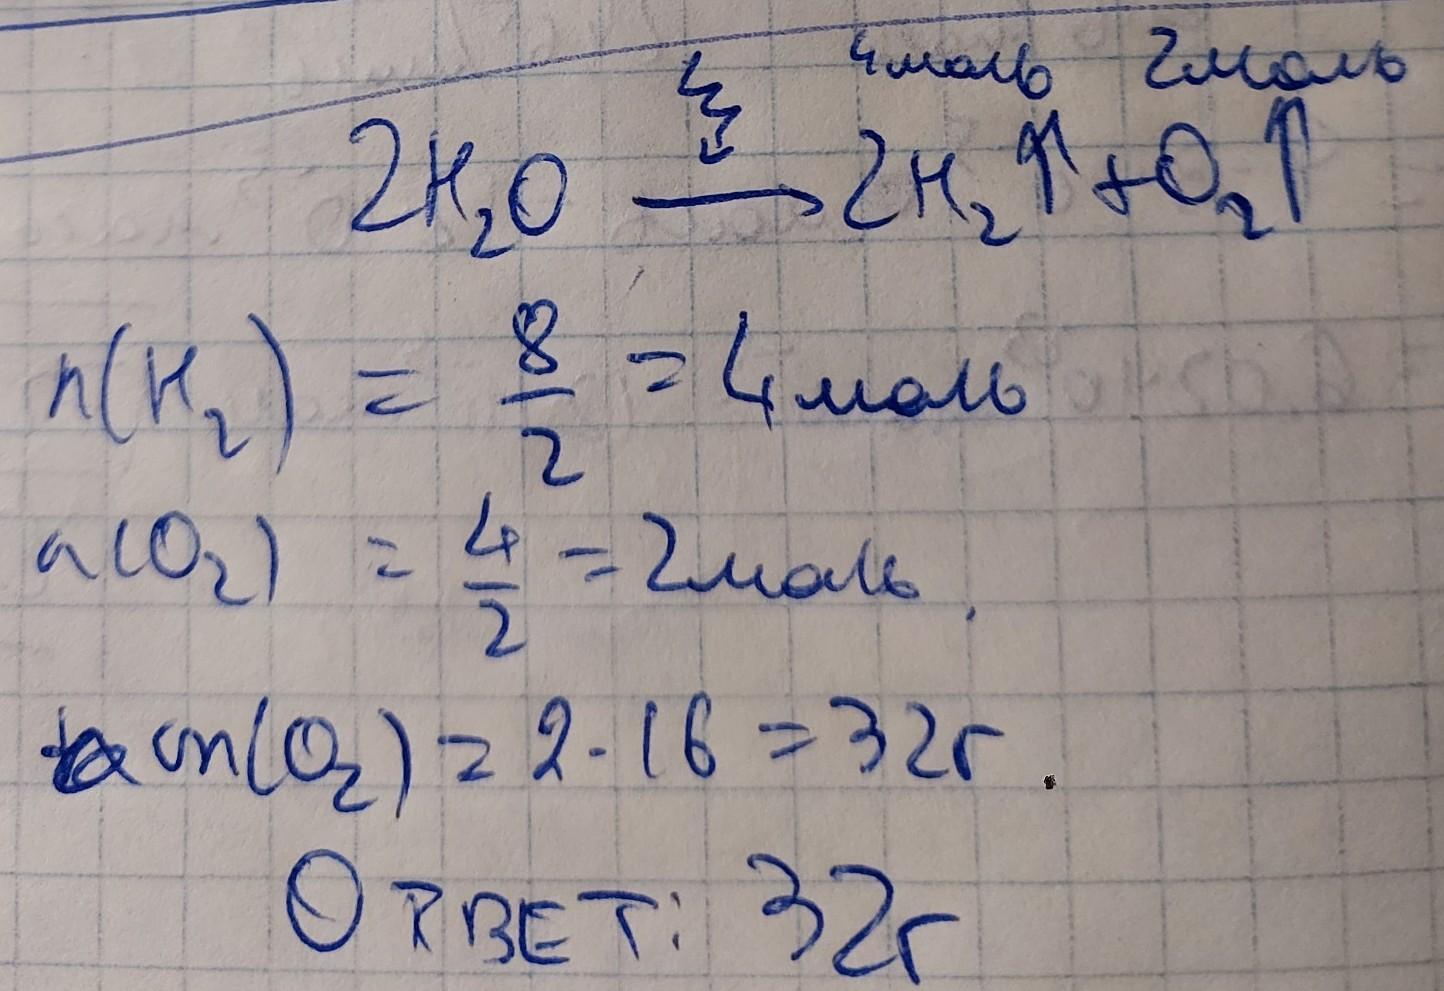 4моль 2моль
2H₂O → 2H₂↑+O₂↑
n(H₂) = 8/2 = 4моль
n(O₂) = 4/2 = 2моль
m(O₂) = 2·16 = 32г.
ОТВЕТ: 32г